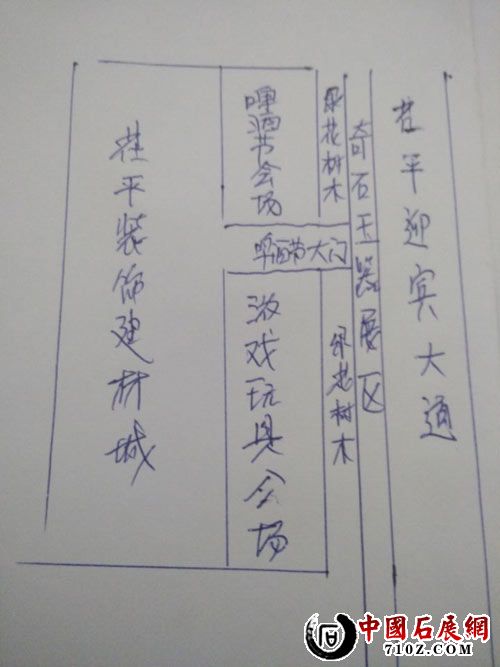 茌平装饰建材城
啤酒节会场
绿花树木
奇石玉器展区
茌平迎宾大通
啤酒节大门
游戏玩具会场
绿花树木
中國石展網
7107.COM